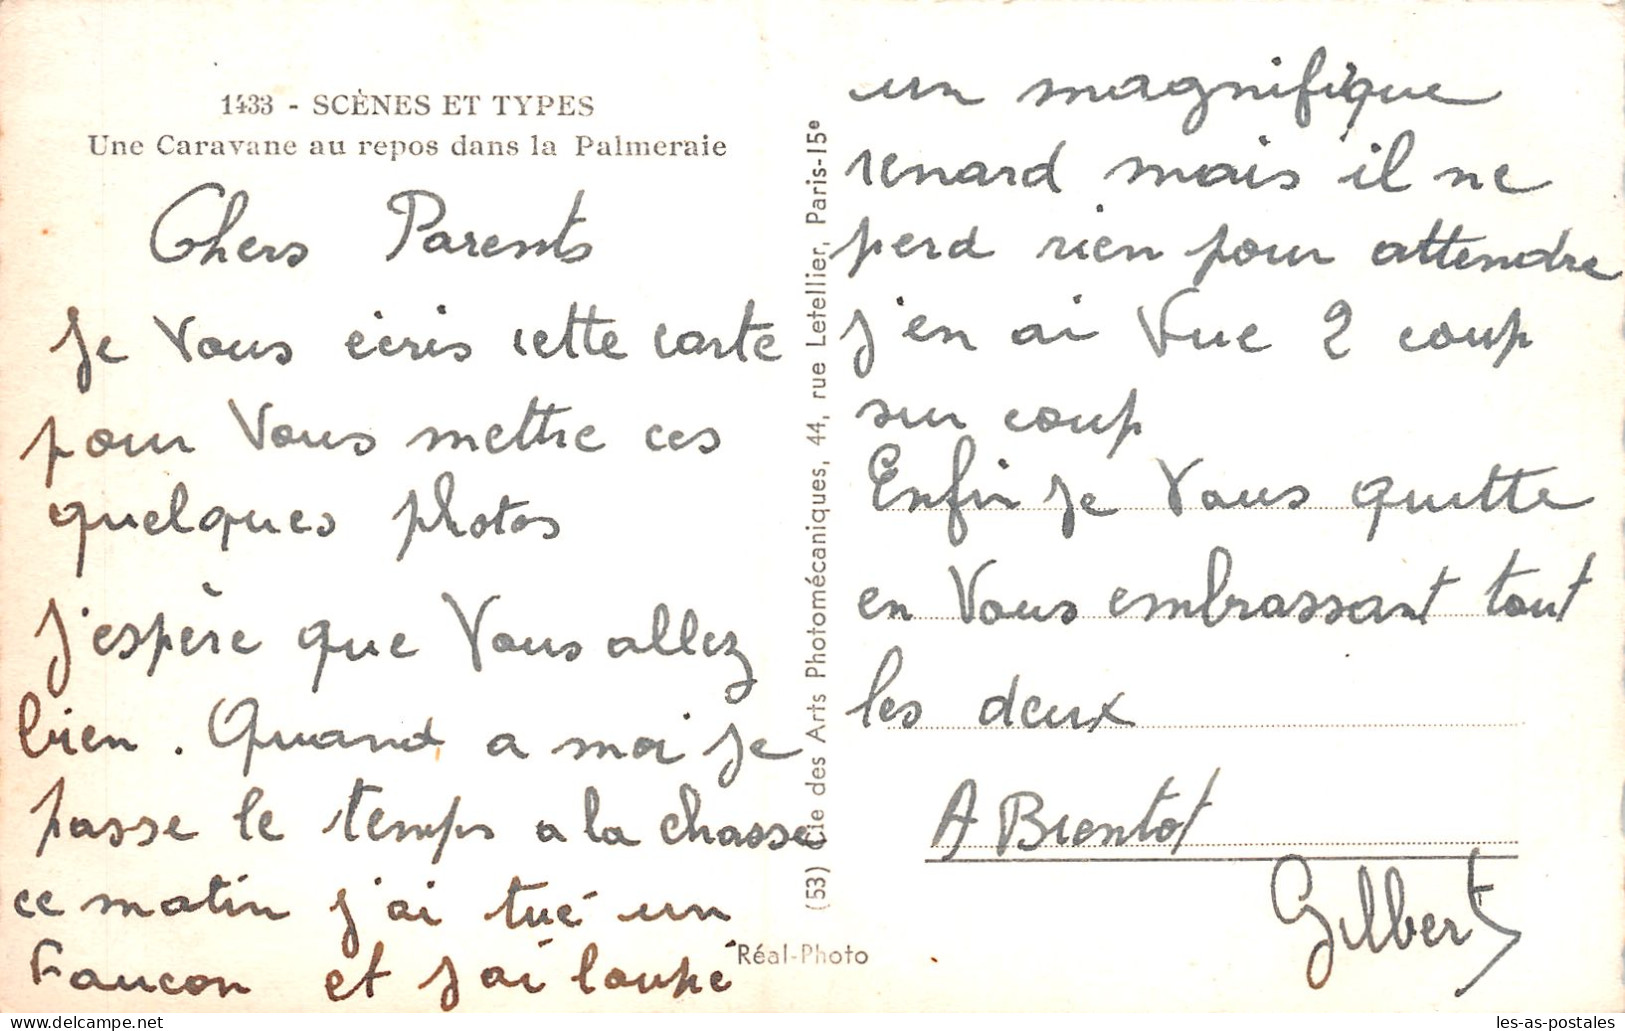 1433 - SCÈNES ET TYPES
Une Caravane au repos dans la Palmeraie
Chers Parents
Je Vous écris cette carte
pour Vous mettre ces
quelques photos
J'espère que Vous allez
bien. Quand a moi je
passe le temps a la chasse
ce matin j'ai tué un
Faucon et j'ai loupé
(53) Cie des Arts Photomécaniques, 44, rue Letellier, Paris-15e
Réal-Photo
un magnifique
renard mais il ne
perd rien pour attendre
j'en ai Vue 2 coup
sur coup
Enfin je Vous quitte
en Vous embrassant tout
les deux
A Bientot
Gilbert
les-as-postales
www.delcampe.net